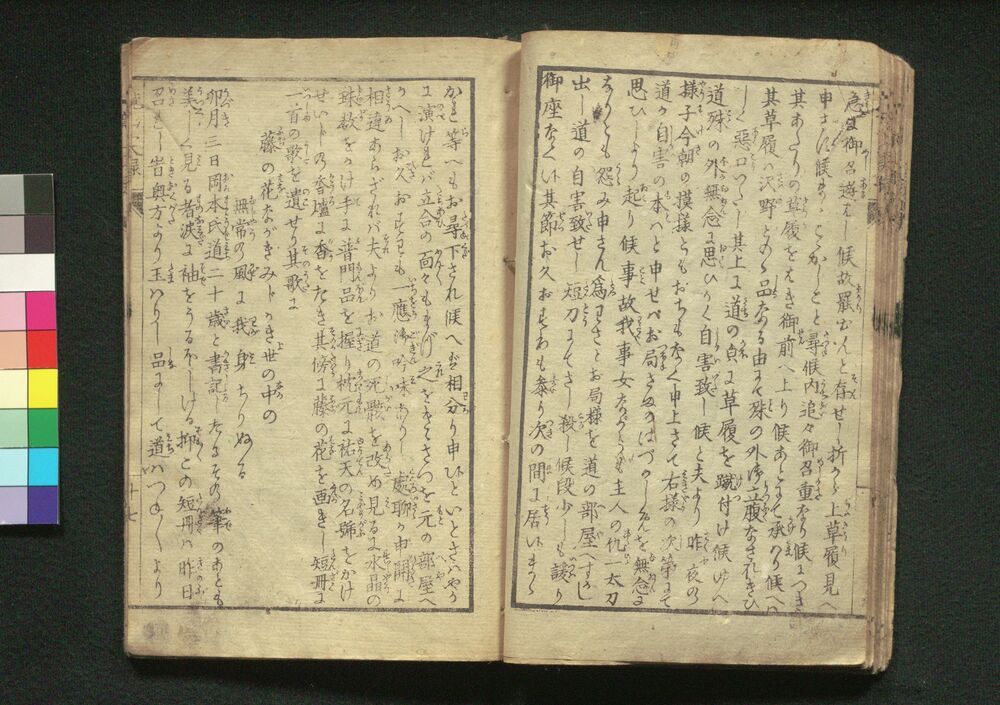 急に御召遊ばし候故罷出んと存せし折から上草履見へ
申さず候まゝこゝかしこと尋候内追々御召重なり候につき
其あたりの草履をはき御前へ上り候あとにて承り候へバ
其草履ハ沢野どのゝ品なる由にて殊の外御立腹なされきひ
しく悪口いたし其上に道の点に草履を蹴付け候ゆへ
道殊の外無念に思ひかく自害致し候と夫より昨夜の
様子今朝の模様どもおちもなく申上さて右様の次第にて
道が自害の本ハと申せバお局さまのはづかしめを無念に
思ひしより起り候事故我事女ながらも主人の仇一太刀
なりとも怨み申さん為わざとお局様を道の部屋へすかし
出し道の自害致せし短刀にてさし殺し候段少しも諼り
御座なくい其節お久おすわも参り次の間に居いまゝ
かれ等へもお尋下され候へバ相分り申いといとさハやか
に演けれバ立合の面々もまげ之をきとさつを元の部屋へ
かへしお久おすわも一應御吟味ありし處聊か申開に
相違あらざれバ夫よりお道の死骸を改め見るに水晶の
珠数をかけ手に普門品を握り枕元に祐天の名號をかけ
せいしの香爐に香をたき其傍に藤の花を画きし短冊に
一首の歌を遺せり其歌に
藤の花ながきみじかき世の中の
無常の風に我身ちりぬる
卯月三日岡本氏道二十歳と書記したるその筆のあとも
美しく見る者涙に袖をうるほしける抑この短冊ハ昨日
召れし岩奥方より玉ハりし品にて道ハつねゞより
十七